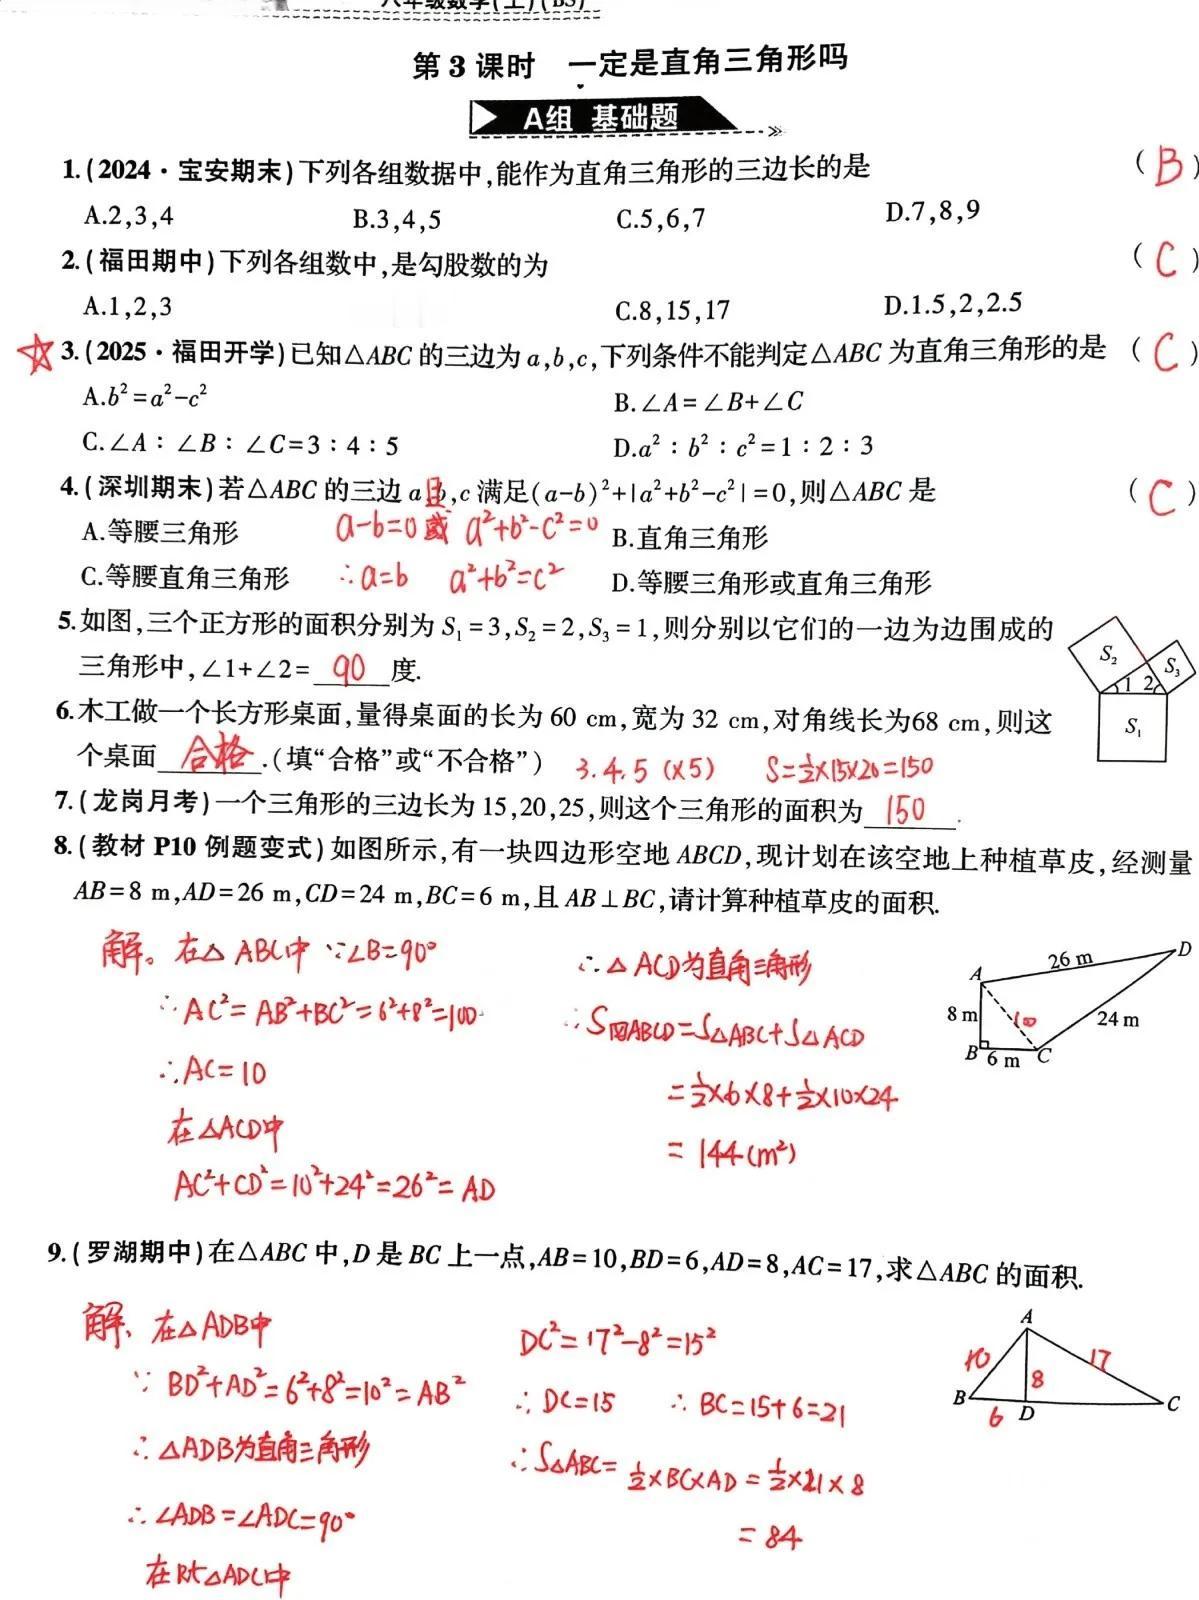 八年级数学(上)(BS)
第3课时 一定是直角三角形吗
A组 基础题
1.(2024·宝安期末)下列各组数据中,能作为直角三角形的三边长的是 (B)
A.2,3,4 B.3,4,5 C.5,6,7 D.7,8,9
2.(福田期中)下列各组数中,是勾股数的为 (C)
A.1,2,3 C.8,15,17 D.1.5,2,2.5
☆3.(2025·福田开学)已知△ABC的三边为a,b,c,下列条件不能判定△ABC为直角三角形的是 (C)
A.b²=a²-c² B.∠A=∠B+∠C
C.∠A:∠B:∠C=3:4:5 D.a²:b²:c²=1:2:3
4.(深圳期末)若△ABC的三边a,b,c满足(a-b)²+|a²+b²-c²|=0,则△ABC是 (C)
且
A.等腰三角形 a-b=0或 a²+b²-c²=0 B.直角三角形
C.等腰直角三角形 ∴a=b a²+b²=c² D.等腰三角形或直角三角形
5.如图,三个正方形的面积分别为S₁=3,S₂=2,S₃=1,则分别以它们的一边为边围成的
三角形中,∠1+∠2=90度.
S₂ S₃
1 2
S₁
6.木工做一个长方形桌面,量得桌面的长为60 cm,宽为32 cm,对角线长为68 cm,则这
个桌面合格.(填“合格”或“不合格”) 3.4.5(×5) S=½×15×20=150
7.(龙岗月考)一个三角形的三边长为15,20,25,则这个三角形的面积为150.
8.(教材P10例题变式)如图所示,有一块四边形空地ABCD,现计划在该空地上种植草皮,经测量
AB=8 m,AD=26 m,CD=24 m,BC=6 m,且AB⊥BC,请计算种植草皮的面积.
解。在△ABC中 ∵∠B=90°
∴AC²=AB²+BC²=6²+8²=100
∴AC=10
在△ACD中
AC²+CD²=10²+24²=26²=AD
∴△ACD为直角三角形
∴S四ABCD=S△ABC+S△ACD
=½×6×8+½×10×24
=144(m²)
A 26 m D
8 m 10 24 m
B 6 m C
9.(罗湖期中)在△ABC中,D是BC上一点,AB=10,BD=6,AD=8,AC=17,求△ABC的面积.
解、在△ADB中
∵BD²+AD²=6²+8²=10²=AB²
∴△ADB为直角三角形
∴∠ADB=∠ADC=90°
在Rt△ADC中
DC²=17²-8²=15²
∴DC=15 ∴BC=15+6=21
∴S△ABC=½×BC×AD=½×21×8
=84
A
10 8 17
B 6 D C